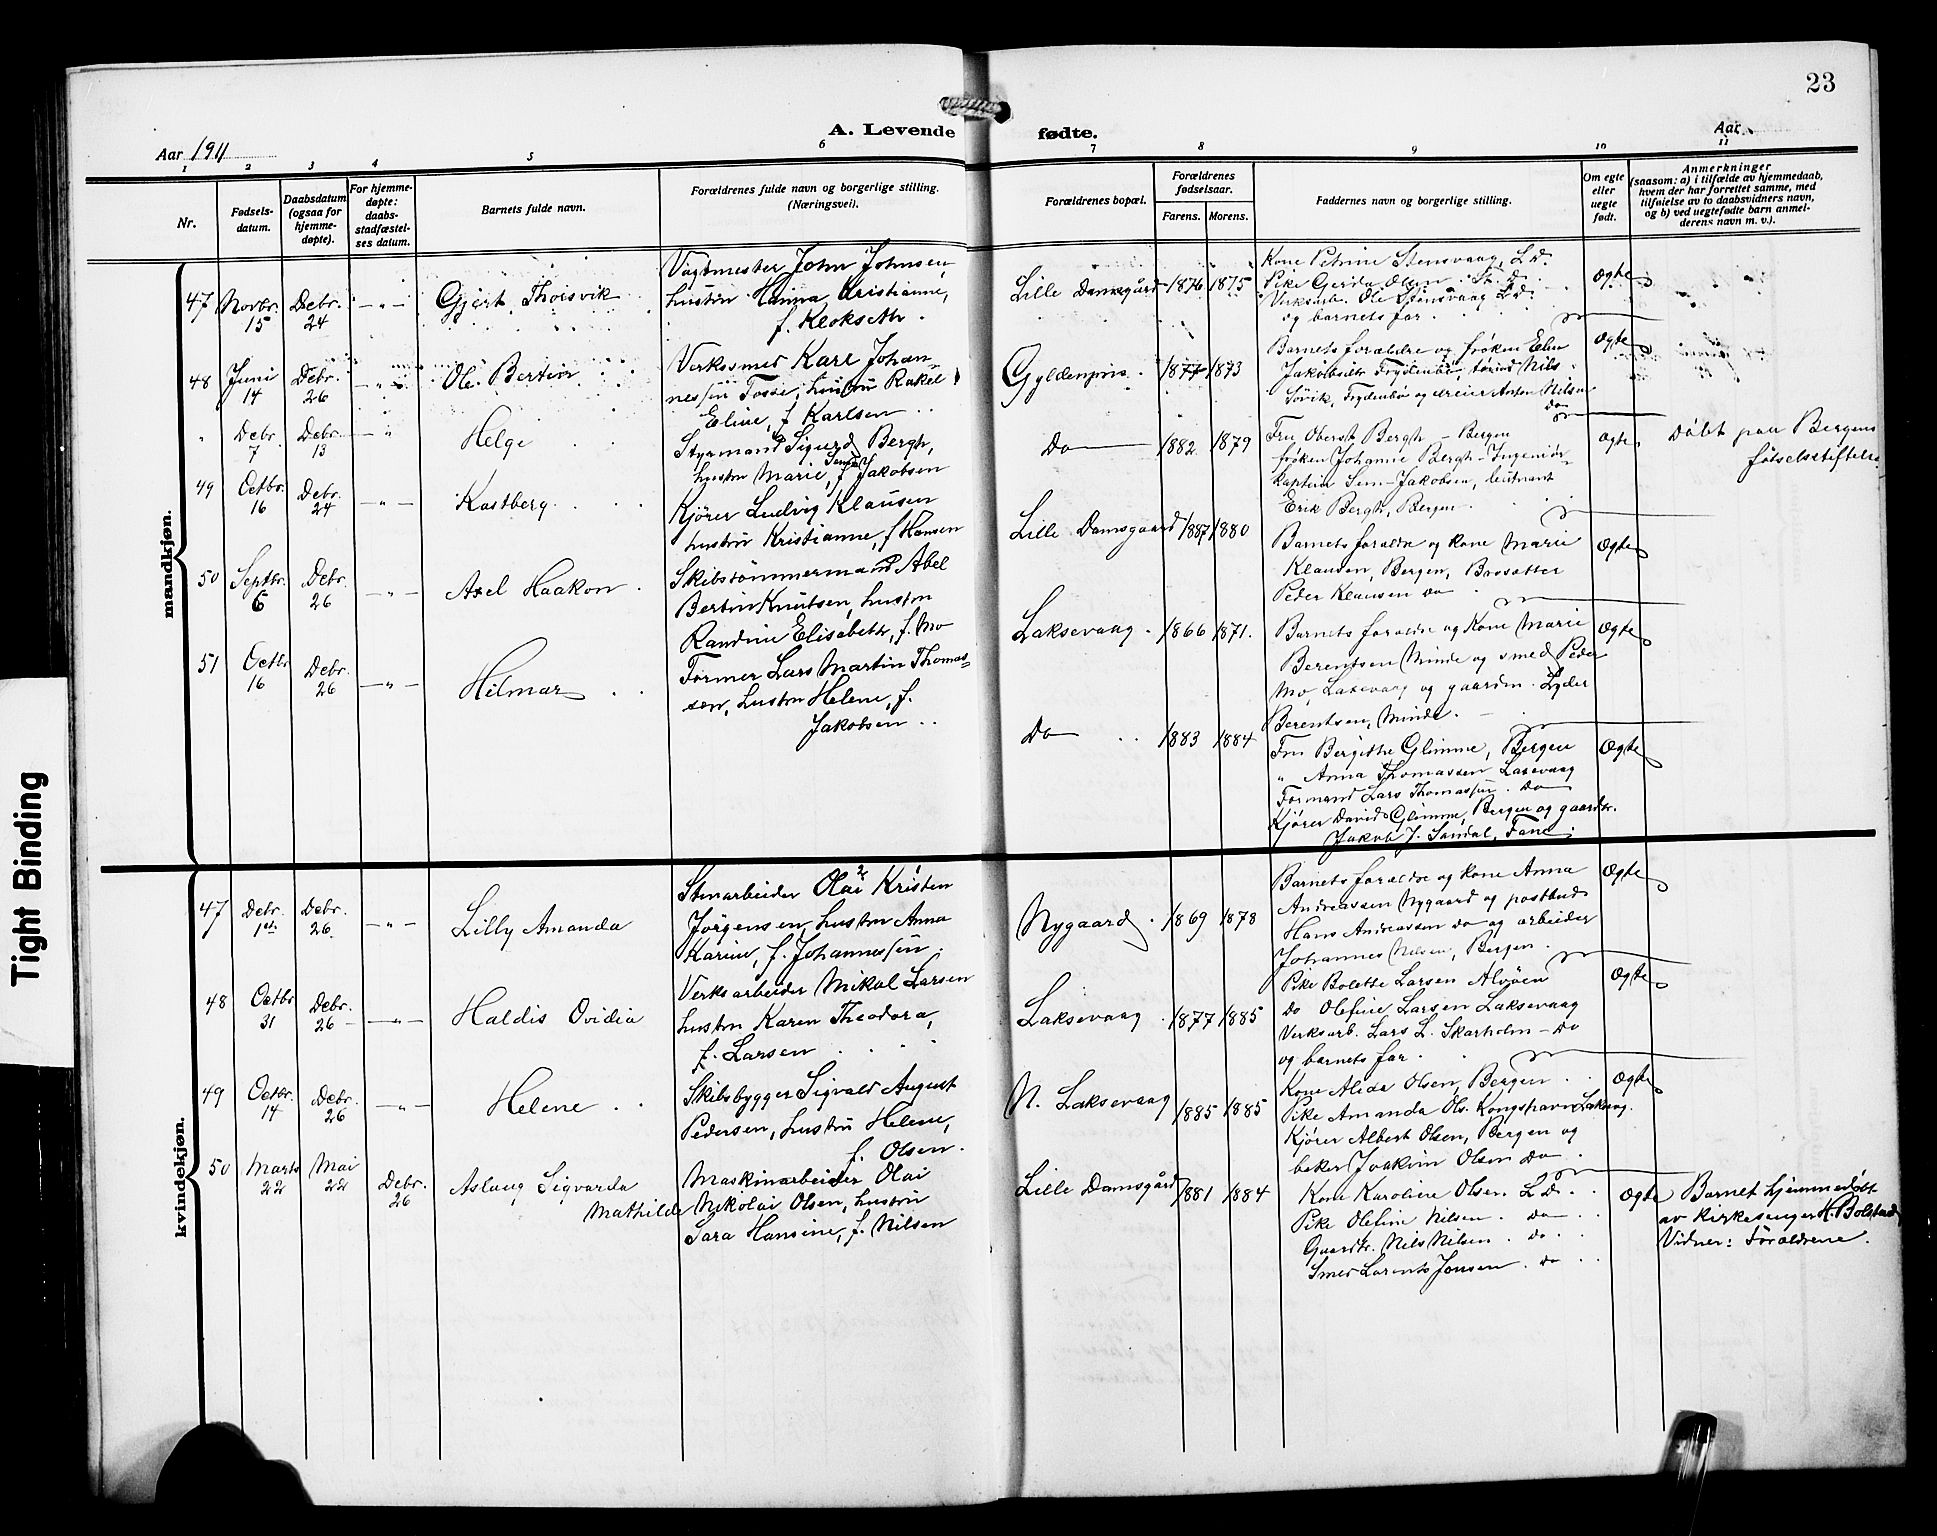 23
A. Levende fødte.
Aar 1911
Aar
1 2 3 4 5 6 7 8 9 10 11
Nr.
Fødsels-
datum.
Daabsdatum
(ogsaa for
hjemme-
døpte).
For hjemme-
døpte:
daabs-
stadfæstel-
ses datum.
Barnets fulde navn.
Forældrenes fulde navn og borgerlige stilling.
(Næringsvei).
Forældrenes bopæl.
Forældrenes
fødselsaar.
Farens. Morens.
Faddernes navn og borgerlige stilling.
Om egte
eller
uegte
født.
Anmerkninger
(saasom: a) i tilfælde av hjemmedaab,
hvem der har forrettet samme, med
tilføielse av to daabsvidners navn,
og b) ved uegtefødte barn anmel-
derens navn m. v.).
mandkjøn.
47 Novbr. 15 Debr. 24 — „ — Gjert Thorsvik
Vagtmester John Johnsen,
hustru Hanna Kristianne,
f. Klokseth.
Lille Damsgård 1876 1875
Kone Petrine Stensvaag, L. D.
Pike Gerda Olsen St. D.
Verksarb. Ole Stensvaag L. D.
og barnets far.
Ægte
48 Juni 14 Debr. 26 — „ — Ole Bertin
Verksmed Karl Johan-
nessen Fosse, hustru Rakel
Eline, f. Karlsen
Gyldenpris. 1877 1873
Barnets forældre og frøken Elen
Jakobsen Frydenbø, tørind Nils
Søvik, Frydenbø og dreier Anton Nilsen
Do
Ægte
„ Debr. 7 Debr. 13 — „ Helge
Styrmand Sigurd Bergh,
hustru Marie, f. Sem Jakobsen
Do 1882 1879
Fru Oberst Bergh - Bergen
frøken Johanne Bergh - Ingeniør
kaptein Sem-Jakobsen, leutnant
Erik Bergh, Bergen.
Ægte
Døbt paa Bergens
føtselsstiftelse
49 Octbr. 16 Debr. 24 — „ — Kastberg
Kjører Ludvig Klausen
hustru Kristianne, f Hansen
Lille Damsgaard 1887 1880
Barnets forældre og kone Marie
Klausen, Bergen, Bossatter
Peder Klausen do
Ægte
50 Septbr. 6 Debr. 26 — „ — Axel Haakon
Skibstømmermand Abel
Bertin Knutsen, hustru
Randine Elisabeth, f. Mo
Laksevaag 1866 1871.
Barnets forældre og Kone Marie
Berentsen Minde og smed Peder
Mo, Laksevaag og gaardm. Lyder
Berentsen, Minde.
Ægte
51 Octbr 16 Debr. 26 — „ — Hilmar
Former Lars Martin Thomas-
sen, hustru Helene, f.
Jakobsen
Do 1883 1884
Fru Bergithe Glimme, Bergen
„ Anna Thomassen Laxevaag
Formand Lars Thomassen. Do
Kjører David Glimme, Bergen og gaardbr.
Jakob J. Sandal, Fane.
Ægte
kvindekjøn.
47 Debr. 1ste Debr. 26. — „ — Lilly Amanda
Stenarbeider Olai Kristen
Jørgensen, hustru Anna
Karine, f. Johannessen.
Nygaard. 1869 1878
Barnets forældre og kone Anna
Andreassen Nygaard og postbud
Hans Andreassen do og arbeider
Johannes Nilsen, Bergen.
Ægte
48 Octbr 31 Debr. 26 — „ — Haldis Ovidia
Verksarbeider Mikal Larsen
hustru Karen Theodora,
f. Larsen
Laksevaag 1877 1885
Pike Bolette Larsen Alvøen
do Olefine Larsen Laksevaag
Verksarb. Lars L. Skarholm - do
og barnets far.
Ægte
49 Octbr. 14 Debr. 26 — „ — Helene
Skibsbygger Sigvald August
Pedersen, hustru Helene,
f. Olsen.
N. Laksevaag 1885 1885
Kone Alida Olsen, Bergen
Pike Amanda Ols. Kongshavn Laksvg.
Kjører Albert Olsen, Bergen og
baker Joakim Olsen do
Ægte
50 Marts 22 Mai 22 Debr. 26 Aslaug Sigvarda
Mathilde
Maskinarbeider Olai
Nikolai Olsen, hustru
Sara Hansine, f. Nilsen
Lille Damsgård 1881 1884
Kone Karoline Olsen. L. D.
Pike Olefine Nilsen. do
Gaardbr. Nils Nilsen. do
Smed Lorents Jonsen. do
Ægte
Barnet hjemmedøbt
av kirkesanger H. Bolstad
Vidner: Forældrene.
Tight Binding